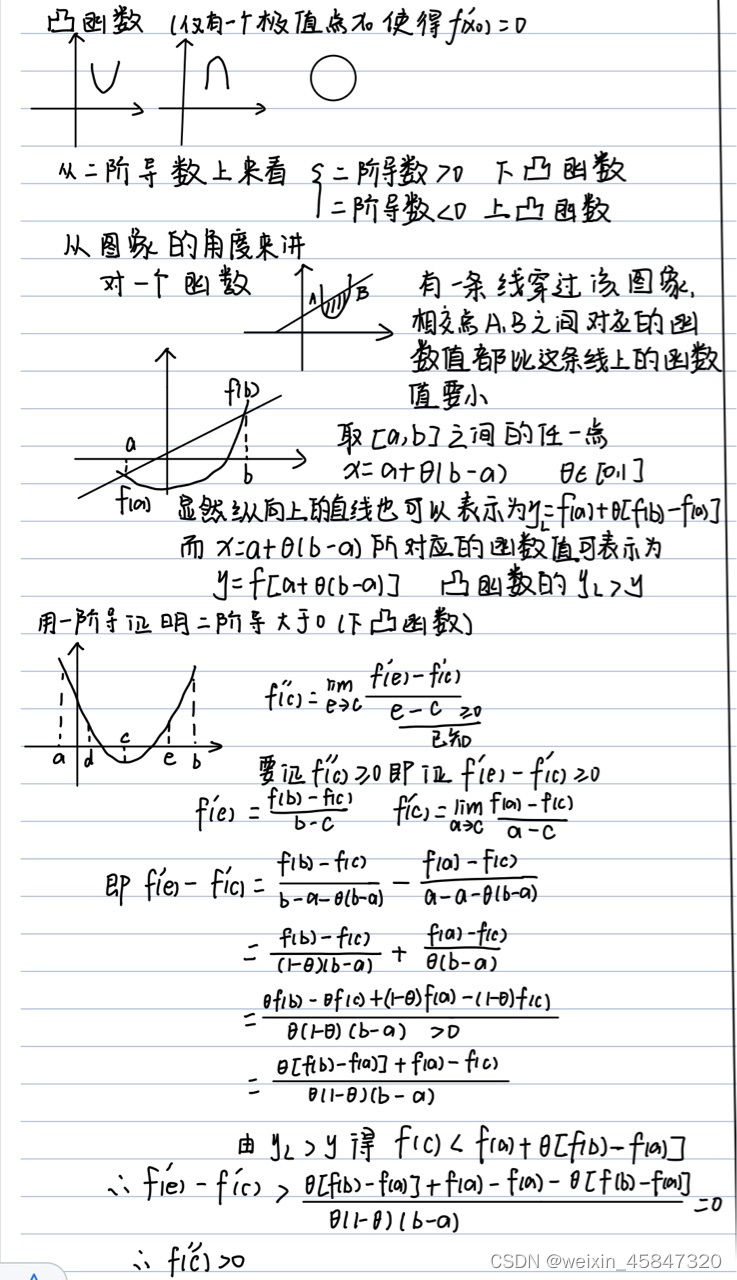 凸函数 (仅有一个极值点x₀ 使得f′(x₀)=0
从二阶导数上来看 { 二阶导数>0 下凸函数
二阶导数<0 上凸函数
从图象的角度来讲
对一个函数
A B
有一条线穿过该图象,
相交点A,B之间对应的函
数值都比这条线上的函数
值要小
f(b)
a
b
f(a)
取[a,b]之间的任一点
x=a+θ(b-a) θ∈[0,1]
显然纵向上的直线也可以表示为y_L=f(a)+θ[f(b)-f(a)]
而 x=a+θ(b-a)所对应的函数值可表示为
y=f[a+θ(b-a)] 凸函数的y_L>y
用一阶导证明二阶导大于0(下凸函数)
a d c e b
f″(c)=lim e→c (f′(e)-f′(c))/(e-c) ≥0
已知
要证f″(c)≥0即证f′(e)-f′(c)≥0
f′(e)=(f(b)-f(c))/(b-c) f′(c)=lim a→c (f(a)-f(c))/(a-c)
即 f′(e)-f′(c)=(f(b)-f(c))/(b-a-θ(b-a)) - (f(a)-f(c))/(a-a-θ(b-a))
=(f(b)-f(c))/((1-θ)(b-a)) + (f(a)-f(c))/(θ(b-a))
=(θf(b)-θf(c)+(1-θ)f(a)-(1-θ)f(c))/(θ(1-θ)(b-a)) >0
=(θ[f(b)-f(a)]+f(a)-f(c))/(θ(1-θ)(b-a))
由y_L>y得 f(c)<f(a)+θ[f(b)-f(a)]
∴f′(e)-f′(c)>(θ[f(b)-f(a)]+f(a)-f(a)-θ[f(b)-f(a)])/(θ(1-θ)(b-a)) =0
∴f″(c)>0
CSDN @weixin_45847320